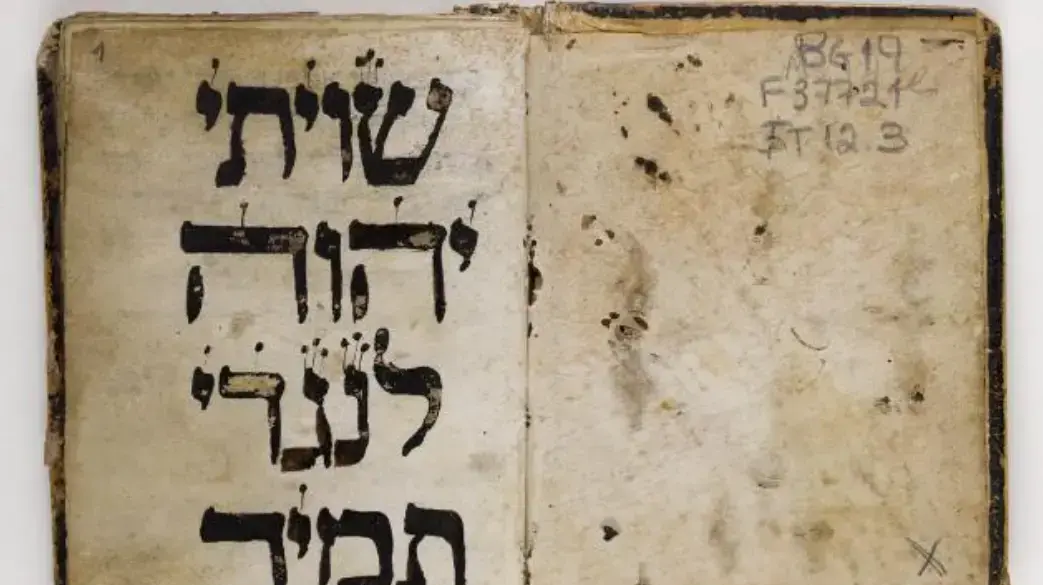 BG 19
F 37721
ST 12.3
1
שויתי
יהוה
לנגדי
תמיד